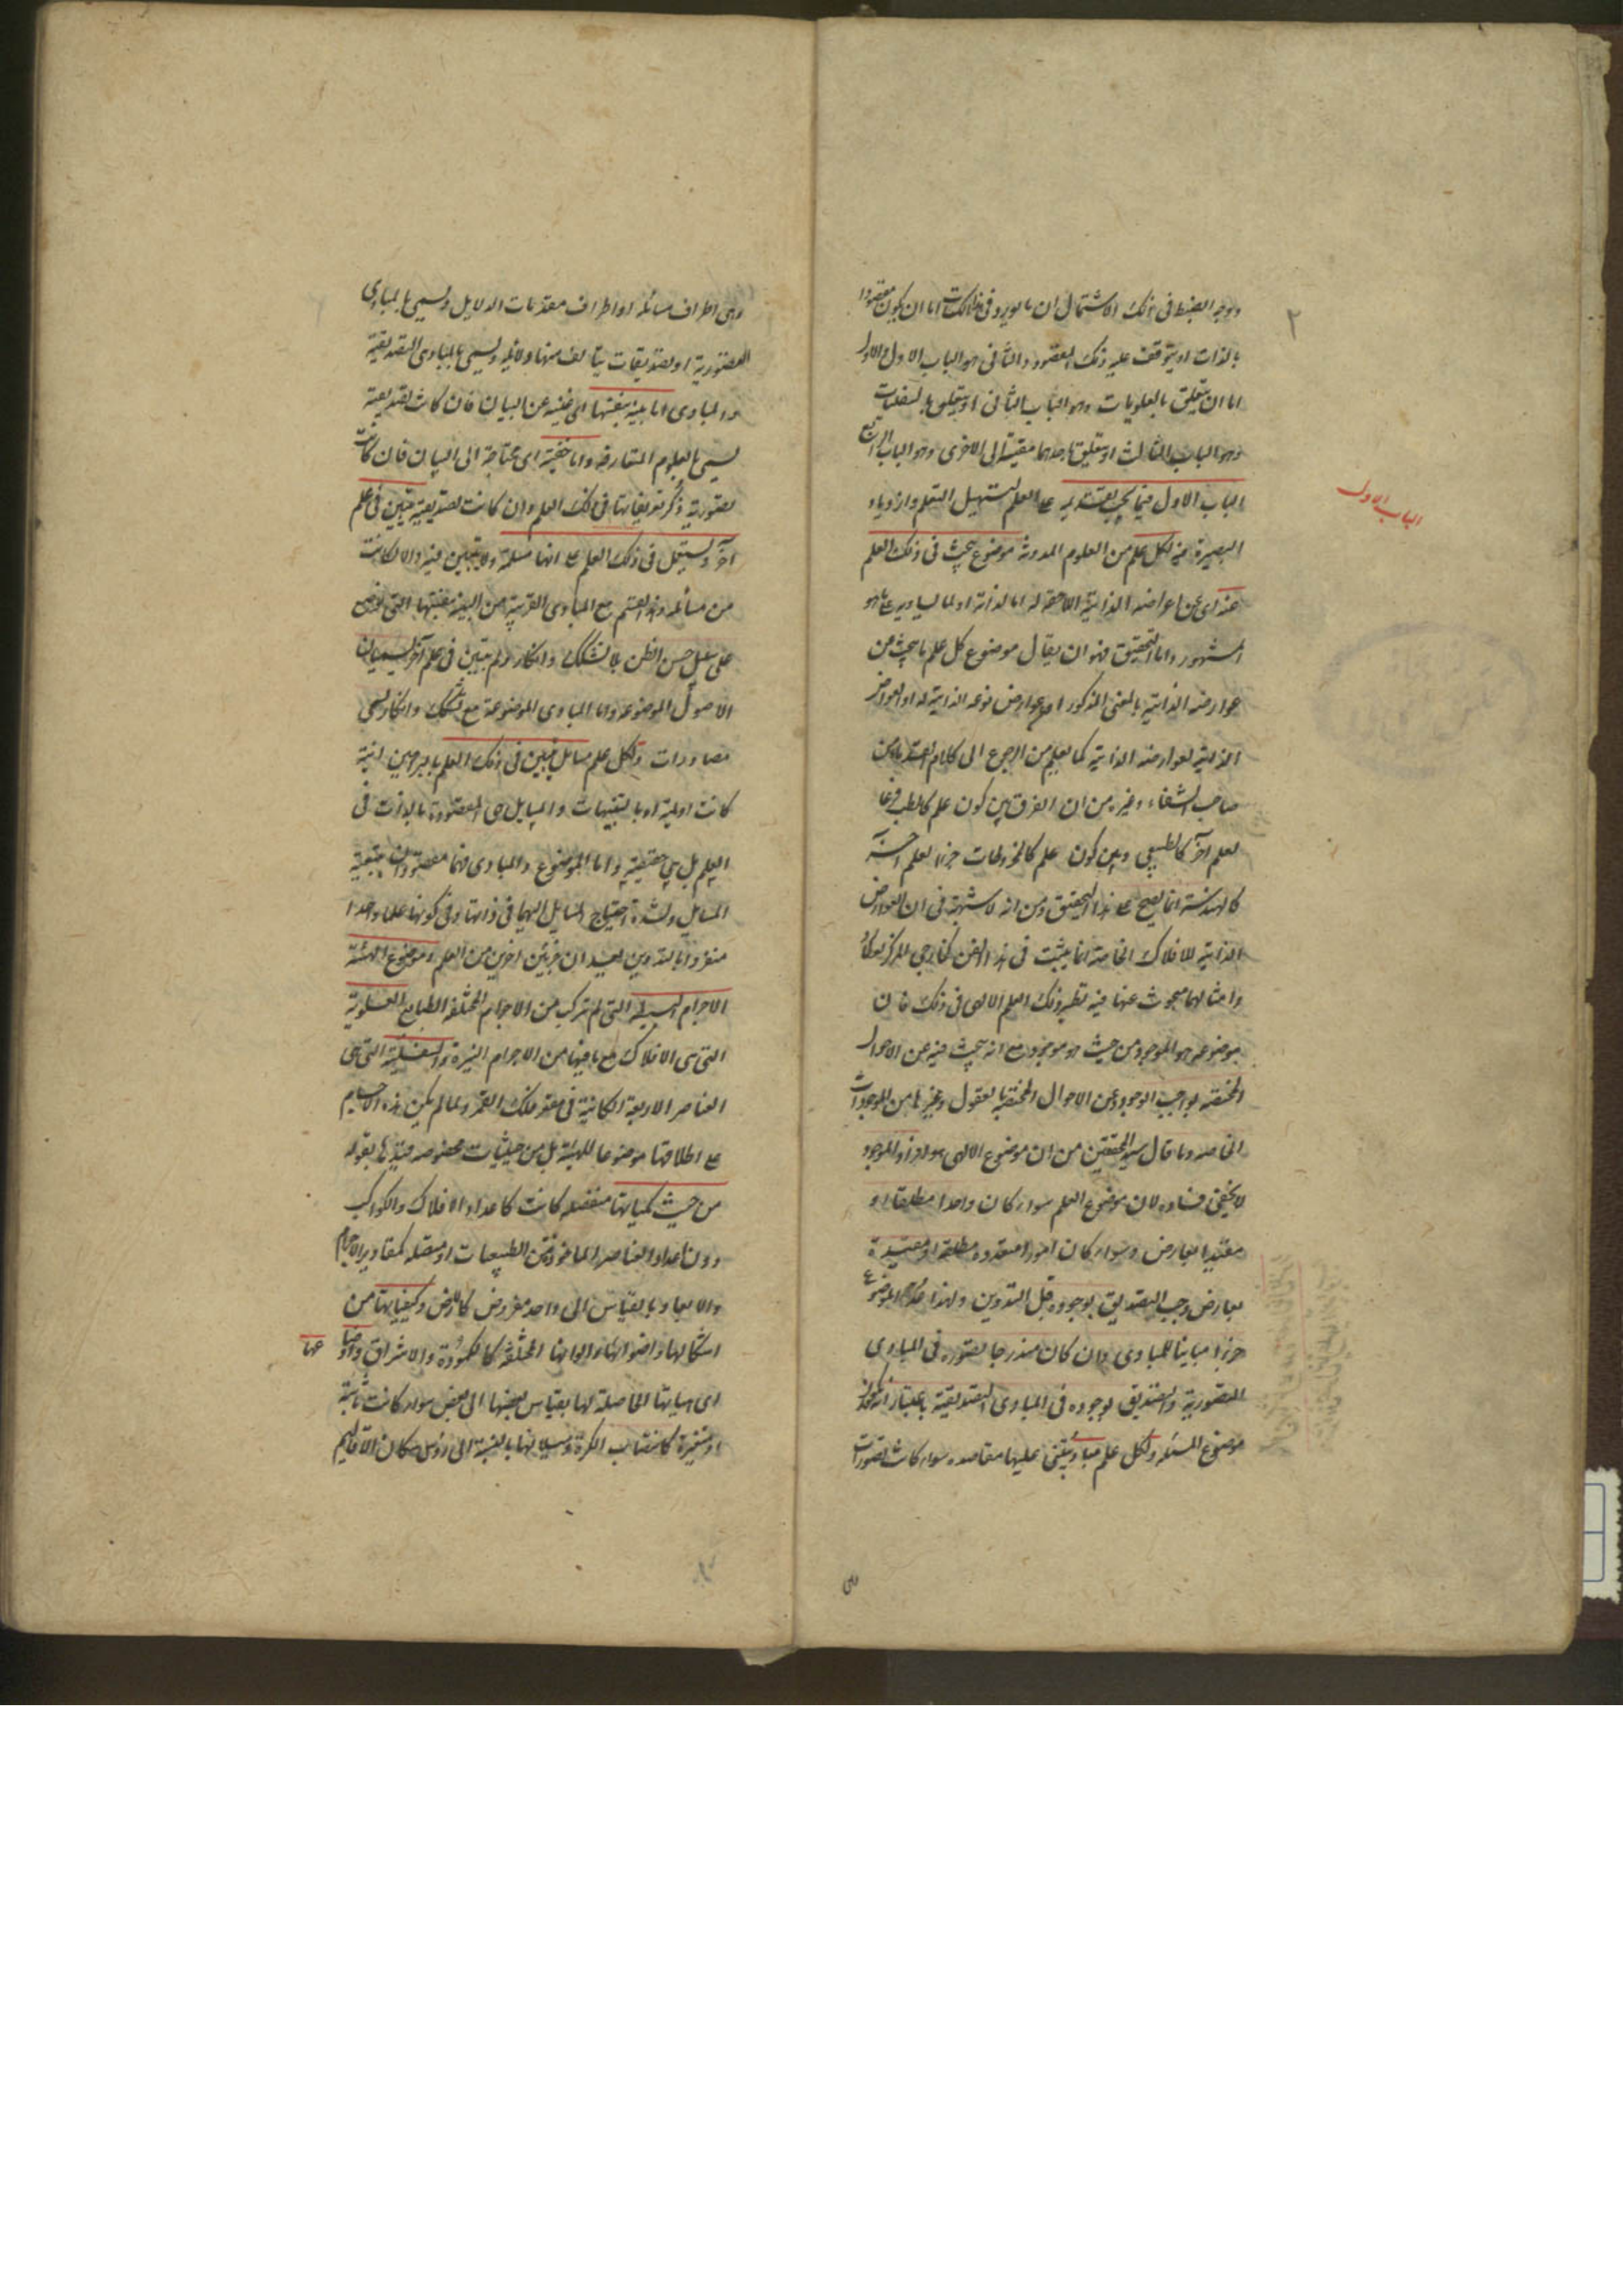 ووجه الضبط في ذلك الاشتمال ان ما يورد في الكتاب اما ان يكون مقصودا
بالذات او يتوقف عليه ذلك المقصود والثاني هو الباب الاول والاول
اما ان يتعلق بالعلويات وهو الباب الثاني او يتعلق بالسفليات
وهو الباب الثالث او يتعلق باحديهما مقيسة الى الاخرى وهو الباب الرابع
الباب الاول
الباب الاول فيما يجب تقديمه على العلم لتسهيل التعلم وازدياد
البصيرة فيه لكل علم من العلوم المدونة موضوع يبحث في ذلك العلم
عنه اى عن اعراضه الذاتية اللاحقة له اما لذاته او لما يساويه على ما هو
المشهور واما التحقيق فهو ان يقال موضوع كل علم ما يبحث فيه من
عوارضه الذاتية بالمعنى المذكور او عوارض نوعه الذاتية له او العوارض
الذاتية لعوارضه الذاتية كما يعلم من الرجوع الى كلام
صاحب الشفاء وغيره من ان الفرق بين كون علم كالطب فرعا
لعلم آخر كالطبيعي وبين كون علم كالمخروطات جزءا لعلم آخر
كالهندسة انما يصح على هذا التحقيق ومن انه لا شبهة في ان العوارض
الذاتية للافلاك الخاصة انما يثبت في هذا الفن كخارجي المركز
وامثالهما مبحوث عنها فيه نظير ذلك العلم الالهى في ذلك فان
موضوعه هو الموجود من حيث هو موجود مع انه يبحث فيه عن الاحوال
المختصة بواجب الوجود وعن الاحوال المختصة بالعقول وغيرها من الموجودات
الخاصة وما قال سيد المحققين من ان موضوع الالهى هو افراد الموجود
لا يخفى فساده لان موضوع العلم سواء كان واحدا مطلقا او
مقيدا بعارض وسواء كان امورا متعددة مطلقة او مقيدة
بعارض وجب التصديق بوجوده قبل التدوين ولهذا الموضوع
جزءا مباينا للمبادى وان كان مندرجا تصوره في المبادى
التصورية والتصديق بوجوده في المبادى التصديقية باعتبار
موضوع المسئلة ولكل علم مباد يبتنى عليها مقاصده سواء كانت تصورات
وهى
وهى اطراف مسائله او اطراف مقدمات الدلايل ويسمى بالمبادى
التصورية او تصديقات يتألف منها دلائله ويسمى بالمبادى التصديقية
والمبادى اما بينة بنفسها اى غنية عن البيان فان كانت تصديقية
يسمى بالعلوم المتعارفة واما خفية اى محتاجة الى البيان فان كانت
تصورية يذكر تعريفاتها في ذلك العلم وان كانت تصديقية تبين في علم
آخر ويستعمل في ذلك العلم على انها مسلمة ولا تتبين فيه والا لكانت
من مسائله وهذا القسم مع المبادى القريبة من البينة بنفسها التي توضع
على سبيل حسن الظن بلا تشكك وانكار ولم تبين في علم آخر يسميان
الاصول الموضوعة واما المبادى الموضوعة مع تشكك وانكار يسمى
مصادرات ولكل علم مسايل تبين في ذلك العلم بالبرهان انية
كانت او لمية او بالتنبيهات والمسايل هى المقصودة بالذات في
العلم بل هى حقيقته واما الموضوع والمبادى فانما مقصودان بتبعية
المسايل ولشدة احتياج المسايل اليهما في ذاتها وفي كونها علما واحدا
منفردا بالتدوين يعدان جزئين آخرين من العلم وموضوع الهيئة
الاجرام البسيطة التي لم تتركب من الاجرام المختلفة الطبايع العلوية
التي هى الافلاك مع ما فيها من الاجرام النيرة والسفلية التي هى
العناصر الاربعة الكائنة في مقعر فلك القمر ولما لم يكن هذه الاجسام
على اطلاقها موضوعا للهيئة بل من حيثيات مخصوصة قيدها بقوله
من حيث كمياتها منفصلة كانت كاعداد الافلاك والكواكب
دون اعداد العناصر الماخوذة من الطبيعيات او متصلة كمقادير الاجرام
والابعاد بالقياس الى واحد مفروض كالارض وكيفياتها من
اشكالها واضوائها والوانها المختلفة كالكمودة والاشراق واوضاعها
اى هيأتها الحاصلة لها بقياس بعضها الى بعض سواء كانت ثابتة
او متغيرة كانتصاب الكرة وميلانها بالنسبة الى رؤس سكان الاقاليم